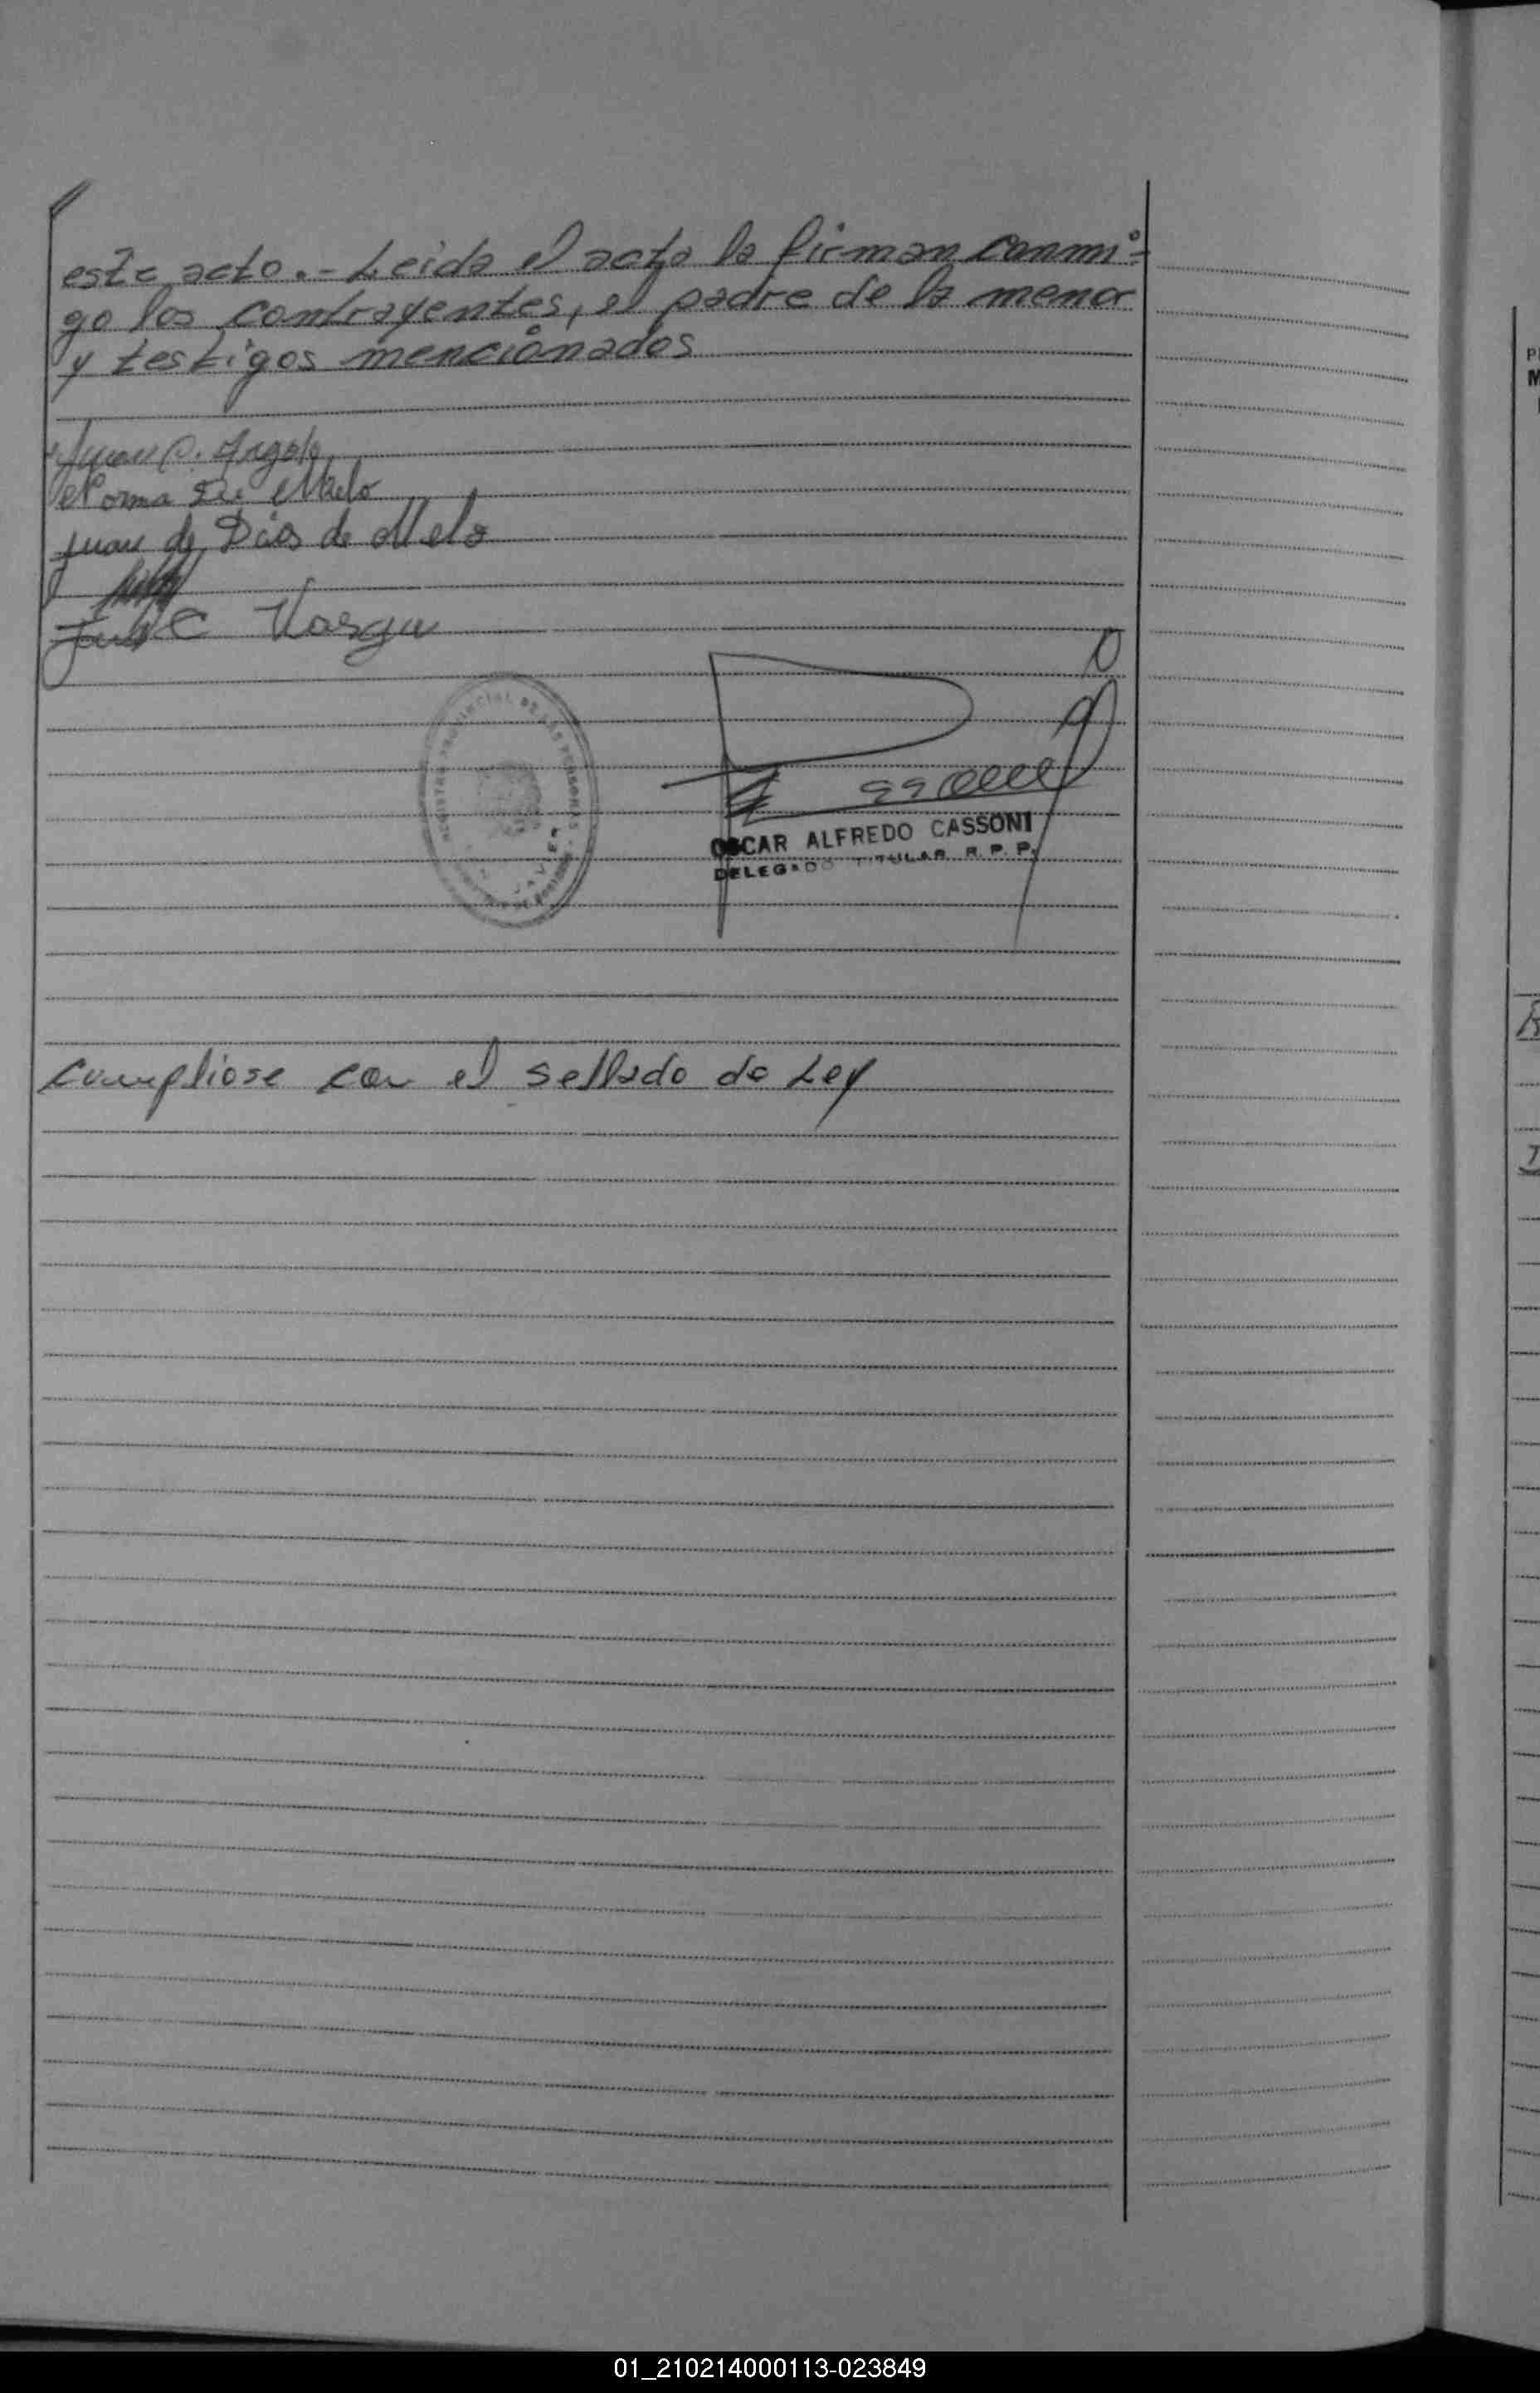 este acto.- Leida el acta la firman conmi-
go los contrayentes, el padre de la menor
y testigos mencionados
Juan C.
Norma De Melo
Juan de Dios de Melo
Jose Vargas
REGISTRO PROVINCIAL DE LAS PERSONAS
JAVIER
OSCAR ALFREDO CASSONI
DELEGADO TITULAR R.P.P.
cumpliose con el sellado de Ley
01_210214000113-023849